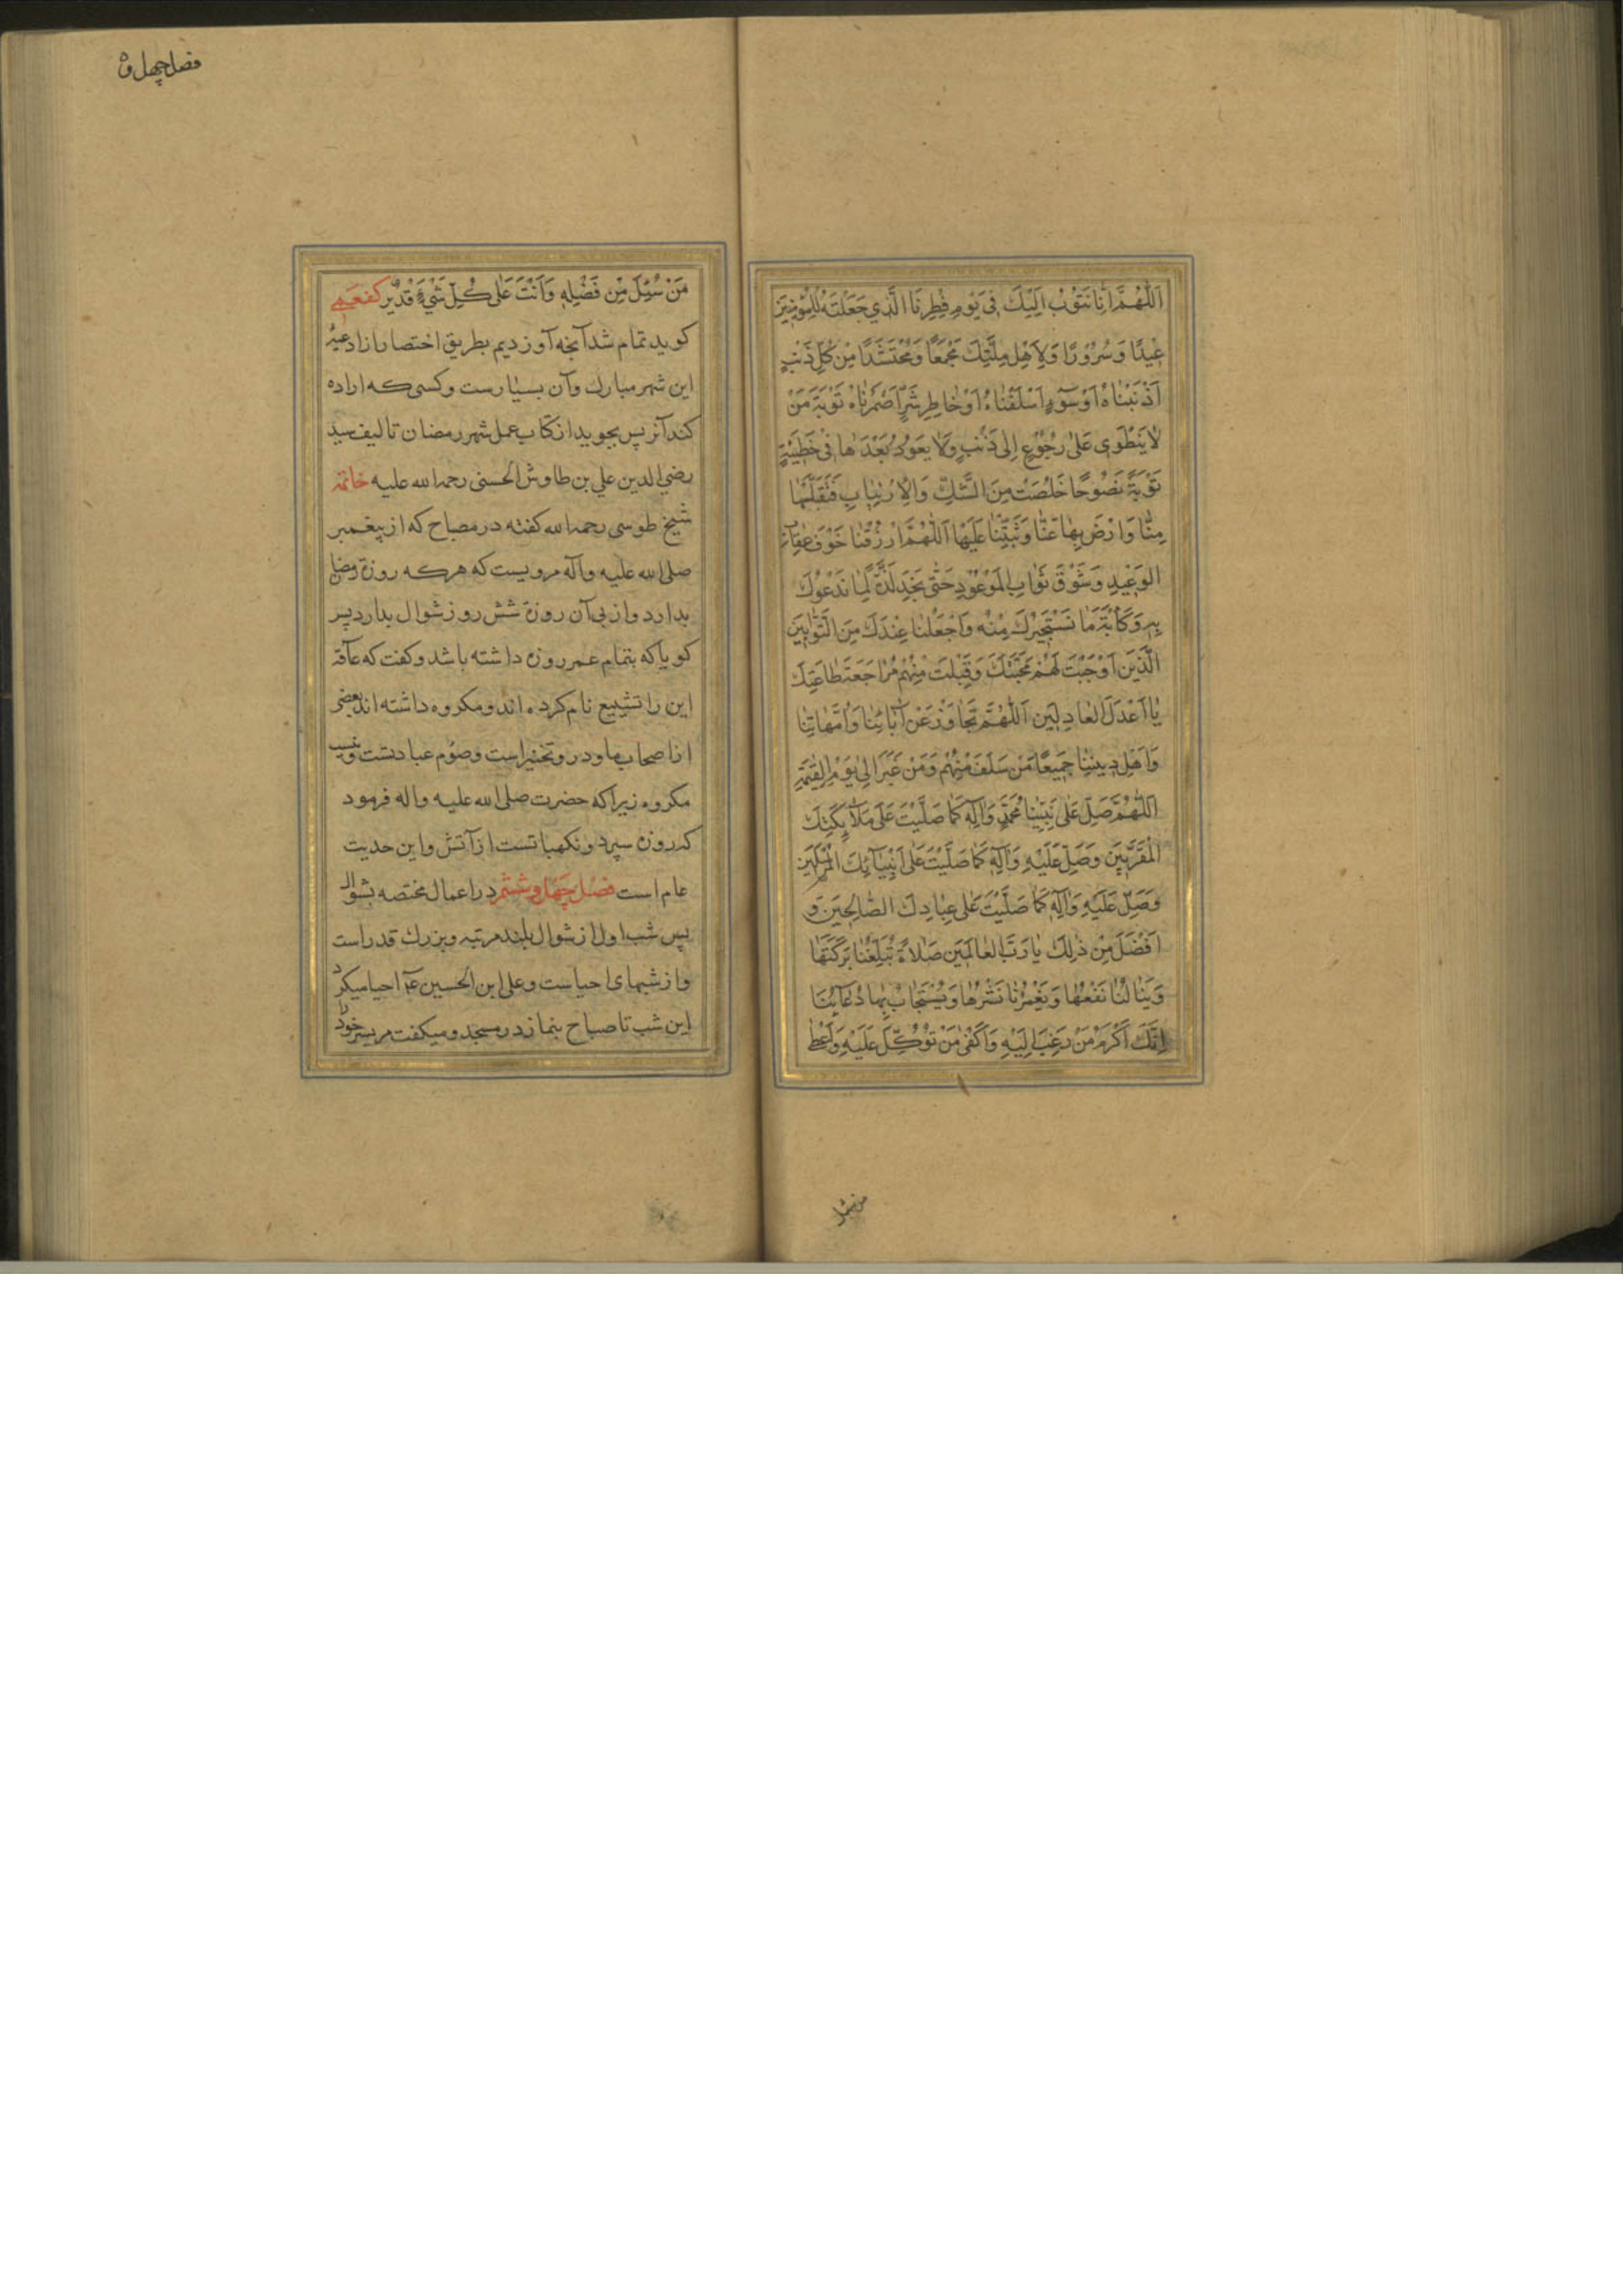 اَللّٰهُمَّ اِنّا نَتُوبُ اِلَيْكَ فى يَوْمِ فِطْرِنَا الَّذي جَعَلْتَهُ لِلْمُؤْمِنينَ
عيدًا وَسُرُورًا وَلِاَهْلِ مِلَّتِكَ مَجْمَعًا وَمُحْتَشَدًا مِنْ كُلِّ ذَنْبٍ
اَذْنَبْناهُ اَوْ سُوۤءٍ اَسْلَفْناهُ اَوْ خاطِرِ شَرٍّ اَضْمَرْناهُ تَوْبَةَ مَنْ
لا يَنْطَوى عَلى رُجُوعٍ اِلى ذَنْبٍ وَلا يَعُودُ بَعْدَها فى خَطيئَةٍ
تَوْبَةً نَصُوحًا خَلُصَتْ مِنَ الشَّكِّ وَالْاِرْتِيابِ فَتَقَبَّلْها
مِنّا وَارْضَ بِها عَنّا وَثَبِّتْنا عَلَيْها اَللّٰهُمَّ ارْزُقْنا خَوْفَ عِقابِ
الوَعيدِ وَشَوْقَ ثَوابِ المَوْعُودِ حَتّى نَجِدَ لَذَّةَ ما نَدْعُوكَ
بِهِ وَكَاٰبَةَ ما نَسْتَجيرُكَ مِنْهُ وَاجْعَلْنا عِنْدَكَ مِنَ التَّوّابينَ
الَّذينَ اَوْجَبْتَ لَهُمْ مَحَبَّتَكَ وَقَبِلْتَ مِنْهُمْ مُراجَعَةَ طاعَتِكَ
يا اَعْدَلَ العادِلينَ اَللّٰهُمَّ تَجاوَزْ عَنْ اٰبائِنا وَاُمَّهاتِنا
وَاَهْلِ دينِنا جَميعًا مَنْ سَلَفَ مِنْهُمْ وَمَنْ غَبَرَ اِلى يَوْمِ القِيٰمَةِ
اَللّٰهُمَّ صَلِّ عَلى نَبِيِّنا مُحَمَّدٍ وَاٰلِهِ كَما صَلَّيْتَ عَلى مَلاۤئِكَتِكَ
الْمُقَرَّبينَ وَصَلِّ عَلَيْهِ وَاٰلِهِ كَما صَلَّيْتَ عَلى اَنْبِيآئِكَ الْمُرْسَلينَ
وَصَلِّ عَلَيْهِ وَاٰلِهِ كَما صَلَّيْتَ عَلى عِبادِكَ الصّالِحينَ وَ
اَفْضَلَ مِنْ ذٰلِكَ يا رَبَّ العالَمينَ صَلاةً تُبَلِّغُنا بَرَكَتَها
وَيَنالُنا نَفْعُها وَيَغْمُرُنا نَشْرُها وَيُسْتَجابُ بِها دُعآئُنا
اِنَّكَ اَكْرَمُ مَنْ رُغِبَ اِلَيْهِ وَاَكْفى مَنْ تُوُكِّلَ عَلَيْهِ وَاَعْطى
من سئل
فصل چهل و
مَنْ سُئِلَ مِنْ فَضْلِهِ وَاَنْتَ عَلى كُلِّ شَيْءٍ قَديرٌ كفعمى
كويد تمام شد آنچه آورديم بطريق اختصار از ادعيه
اين شهر مبارك وآن بسيارست وكسى كه اراده
كند آنرا پس بجويد از كتاب عمل شهر رمضان تاليف سيد
رضي الدين علي بن طاوس الحسنى رحمه الله عليه خاتمة
شيخ طوسى رحمه الله كفته در مصباح كه از پيغمبر
صلى الله عليه وآله مرويست كه هركه روزه رمضان
بدارد و از پى آن روزه شش روز شوال بدارد پس
كويا كه بتمام عمر روزه داشته باشد وكفت كه عامّه
اين را تشييع نام كرده اند ومكروه داشته اند بعضى
از اصحاب ما ودر و تخيير است وصوم عبادتست ونيست
مكروه زيرا كه حضرت صلى الله عليه واله فرمود
كه روزه سپر و نكهبانست از آتش واين حديث
عام است فصل چهل وششم در اعمال مختصه بشوال
پس شب اول از شوال بلند مرتبه وبزرك قدر است
واز شبهاى احياست وعلى ابن الحسين ع احيا ميكرد
اين شب تا صباح بنماز در مسجد وميكفت مر پسر خود را